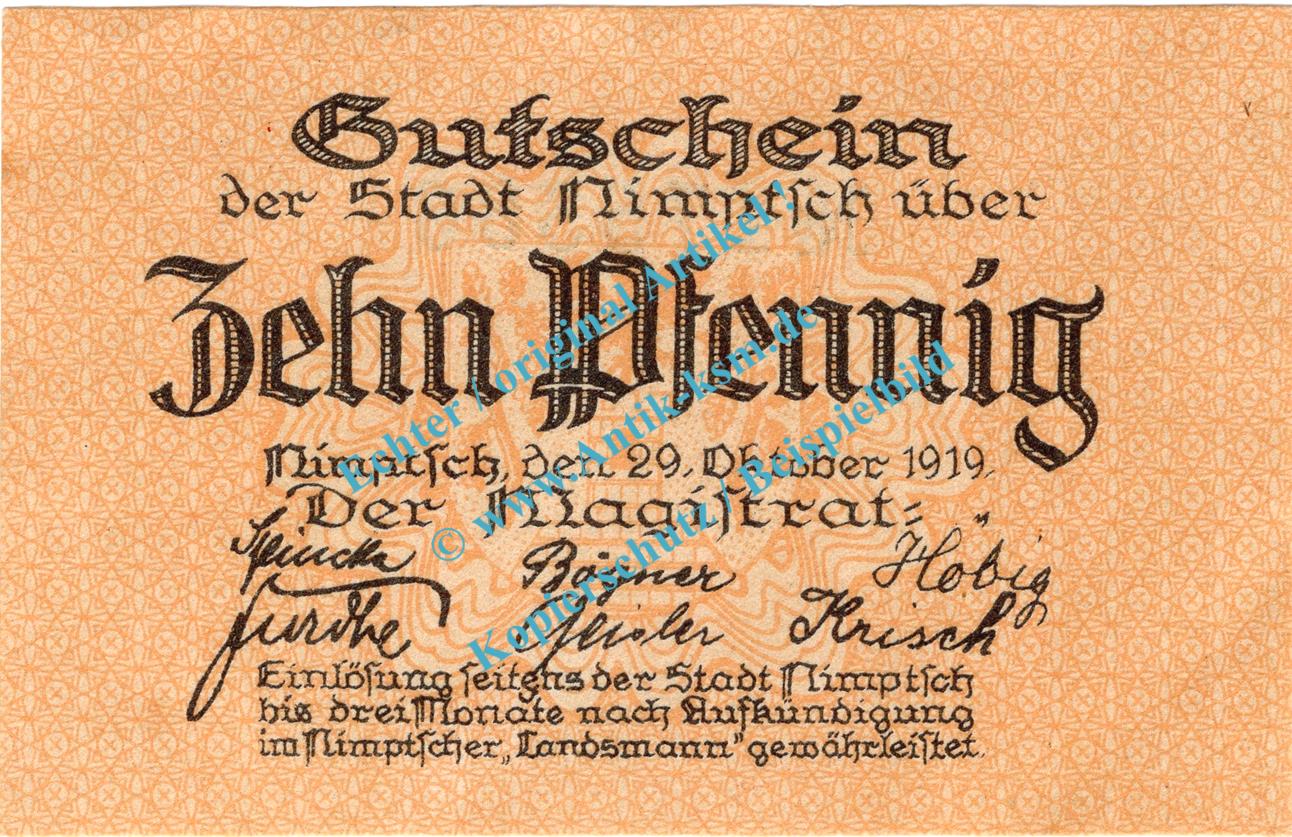 Gutschein
der Stadt Nimptsch über
Zehn Pfennig
Nimptsch, den 29. Oktober 1919.
Der Magistrat:
Börner Höbig
Geisler Krisch
Einlösung seitens der Stadt Nimptsch
bis drei Monate nach Aufkündigung
im Nimptscher „Landsmann“ gewährleistet.
Echter / original Artikel !
© www.Antik-ksm.de
Kopierschutz / Beispielbild